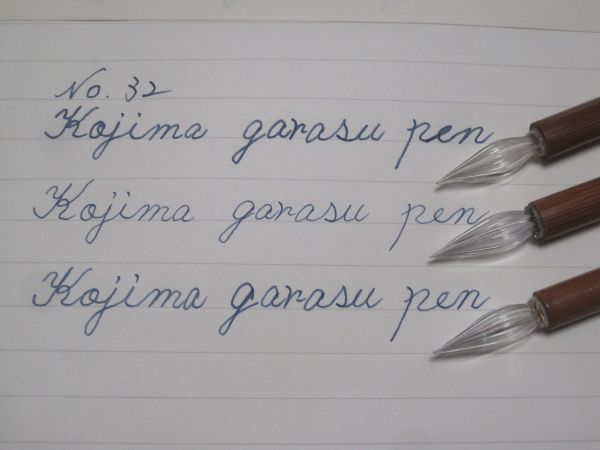 No. 32
Kojima garasu pen
Kojima garasu pen
Kojima garasu pen